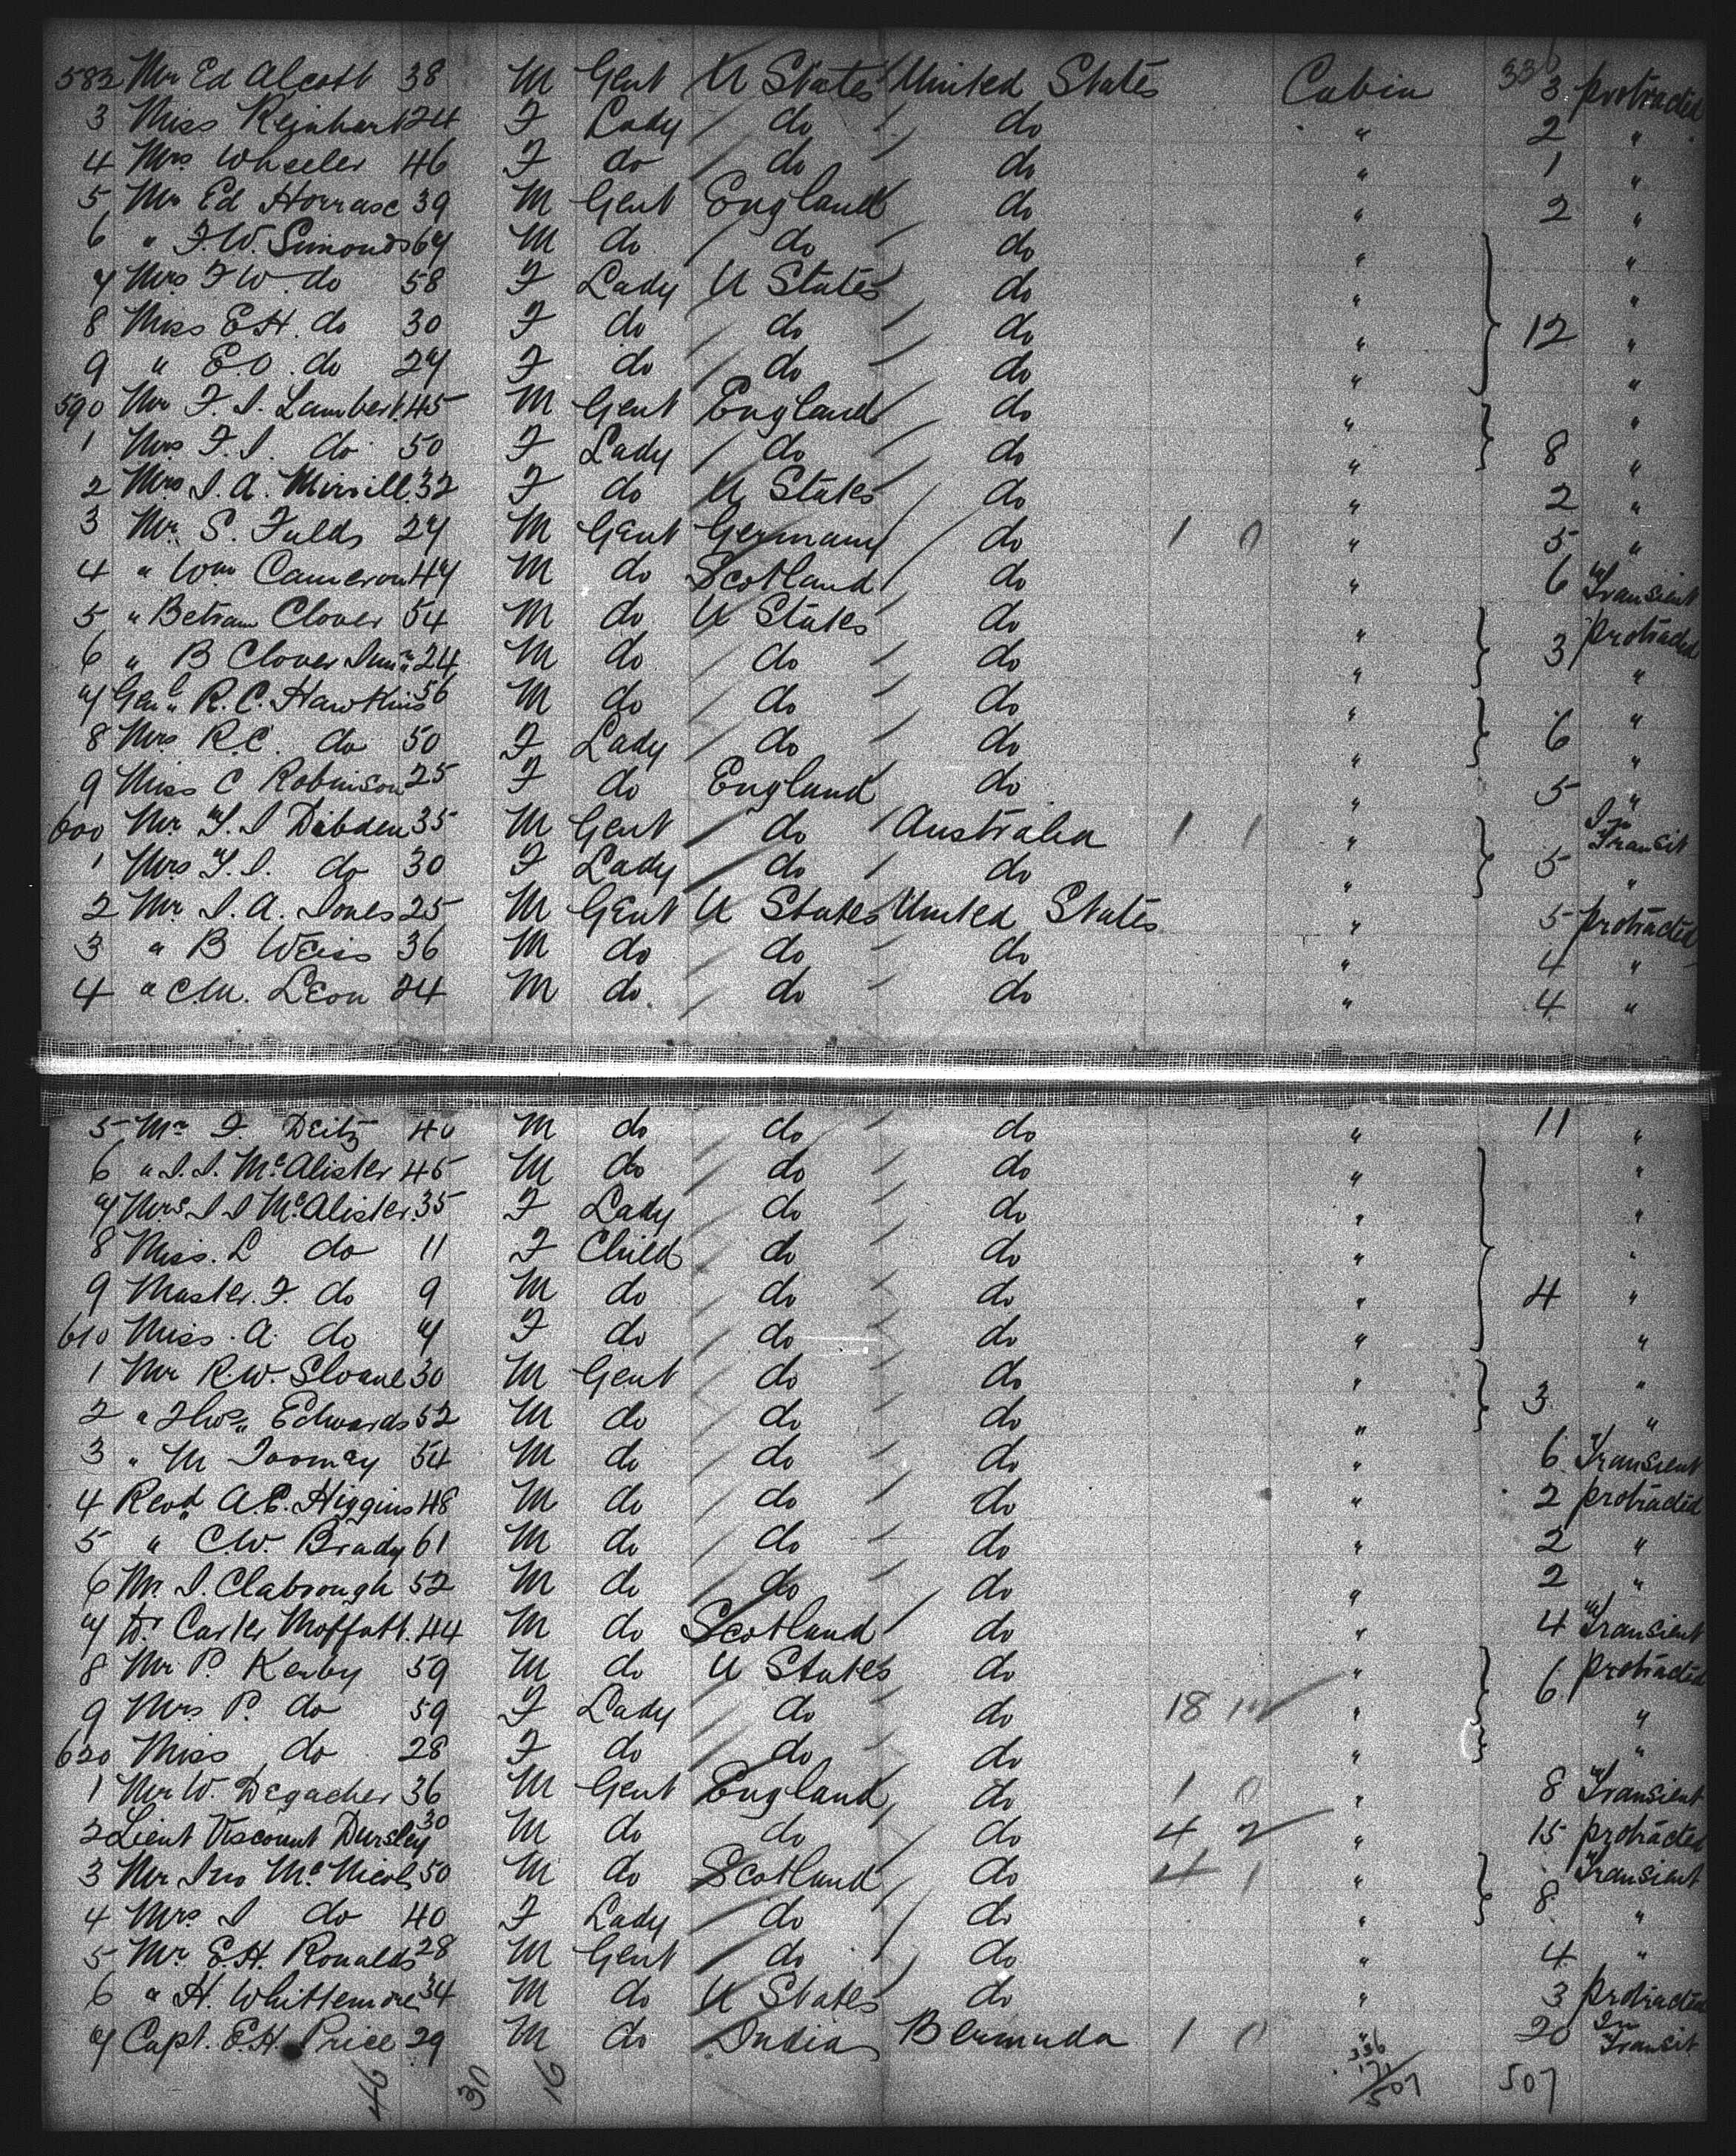 582 Mr Ed Alcott 38 M Gent U States United States Cabin 336 3 protracted
3 Miss Reinhart 24 F Lady do do " 2 "
4 Mrs Wheeler 46 F do do do " 1 "
5 Mr Ed Horrase 39 M Gent England do " 2 "
6 " F.W. Simonds 64 M do do do " "
7 Mrs F W do 58 F Lady U States do " "
8 Miss E.H. do 30 F do do do " 12 "
9 " E.O. do 27 F do do do " "
590 Mr F. J. Lambert 45 M Gent England do " "
1 Mrs F. J. do 50 F Lady do do " 8 "
2 Mrs J. A. Mirrill 32 F do U States do " 2 "
3 Mr S. Fulds 27 M Gent Germany do 1 0 " 5 "
4 " Wm Cameron 47 M do Scotland do " 6 Transient
5 " Betram Clover 54 M do U States do " protracted
6 " B Clover Junr 24 M do do do " 3 "
7 Genl R. C. Hawkins 56 M do do do " "
8 Mrs R.C. do 50 F Lady do do " 6 "
9 Miss C Robinson 25 F do England do " 5 "
600 Mr T. J Dibden 35 M Gent do Australia 1 1 " In Transit
1 Mrs T. J. do 30 F Lady do do " 5 "
2 Mr J. A. Jones 25 M Gent U States United States " 5 protracted
3 " B Weiss 36 M do do do " 4 "
4 " C.M. Leon 24 M do do do " 4 "
5 Mr F. Deitz 40 M do do do " 11 "
6 " J. J. McAlister 45 M do do do " "
7 Mrs J J McAlister 35 F Lady do do " "
8 Miss. L do 11 F Child do do " "
9 Master. F. do 9 M do do do " 4 "
610 Miss. A. do 7 F do do do " "
1 Mr R.W. Sloane 30 M Gent do do " "
2 " Thos Edwards 52 M do do do " 3 "
3 " M Toomay 54 M do do do " 6 Transient
4 Revd A.E. Higgins 48 M do do do " 2 protracted
5 " C.W. Brady 61 M do do do " 2 "
6 Mr J. Clabrough 52 M do do do " 2 "
7 Dr Carter Moffatt. 44 M do Scotland do " 4 Transient
8 Mr P. Kenby 59 M do U States do " protracted
9 Mrs P. do 59 F Lady do do 18 " 6 "
620 Miss do 28 F do do do " "
1 Mr W. Degacher 36 M Gent England do 1 0 " 8 Transient
2 Lieut Viscount Dursley 30 M do do do 4 2 " 15 protracted
3 Mr Jno McNicol 50 M do Scotland do 4 1 " Transient
4 Mrs J do 40 F Lady do do " 8 "
5 Mr E.H. Ronalds 28 M Gent do do " 4 "
6 " H. Whittemore 34 M do U States do " 3 protracted
7 Capt. E.H. Price 29 M do India Bermuda 1 0 " 20 In Transit
46 30 16 336 171 507 507